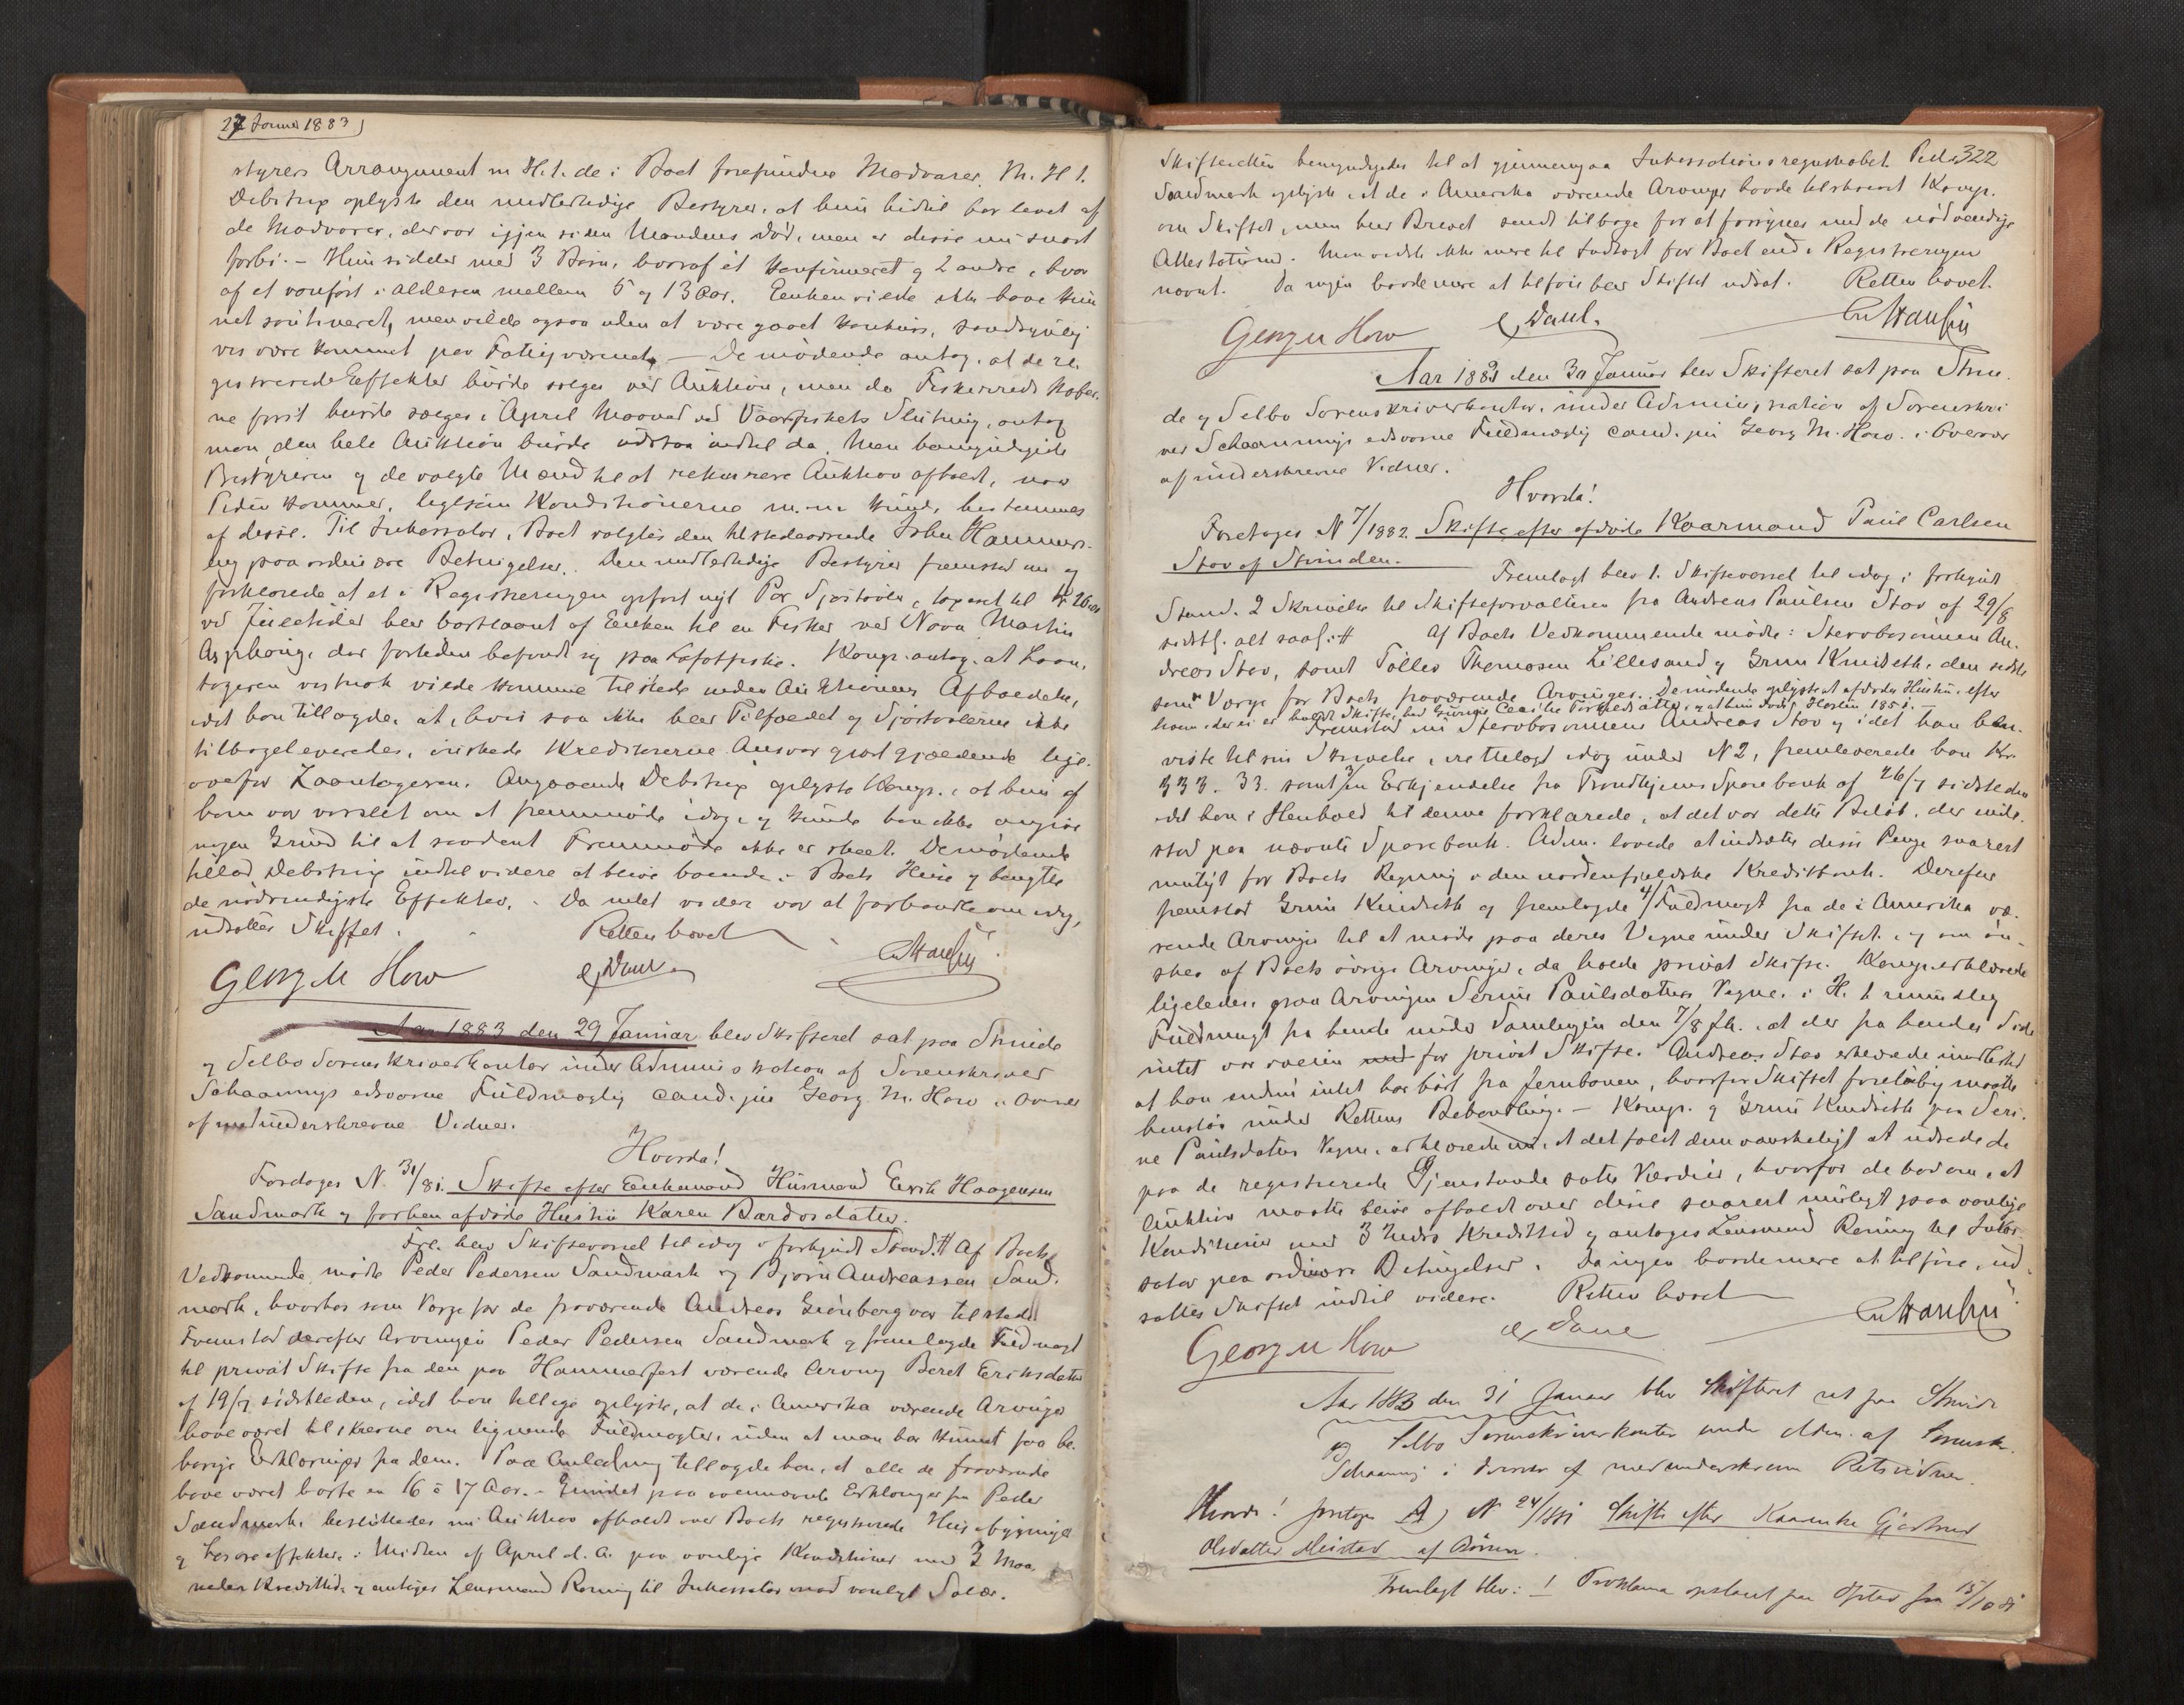 27 Januar 1883
styrers Arrangement m H. t. de i Boet forefundne Madvarer. M. H t.
Debitrix oplyste den midlertidige Bestyrer, at hun hidtil har levet af
de Madvarer, der var igjen siden Mandens Død, men er disse nu snart
forbi. – Hun sidder med 3 Børn, hvoraf et konfirmeret og 2 andre, hvor
af et vanført i Alderen mellem 5 og 13 Aar. Enken vilde ikke have kun
net , men vilde ogsaa uden at være gaaet Konkurs, sandsynlig
vis være kommet paa Fattigvæsenet. – De mødende antog, at de re
gistrerede Effekter burde sælges ved Auktion, men da Fiskeredskaber
ne først burde sælges i April Maaned ved Vaarfiskets Slutning, antog
man, den hele Auktion burde udstaa indtil da. Man bemyndigede
Bestyreren og de valgte Mænd til at rekvirere Auktion afholdt, naar
Tiden kommer, ligesom Konditionerne m. m. kunde bestemmes
af disse. Til Inkassator i Boet valgtes den tilstedeværende John Hammer-
ing paa ordinære Betingelser. Den midlertidige Bestyrer fremstod nu og
forklarede at et i Registreringen opført nyt Par Sjøstøvler, taxeret til Kr 26.00
ved Juletider blev bortlaant af Enken til en Fisker ved Navn Martin
Asphaug, der fortiden befandt sig paa Lofotfiske. Komp. antog, at Laan-
tageren vistnok vilde komme tilstede inden Auktionens Afholdelse,
idet han tillagde, at, hvis saa ikke blev Tilfældet og Sjøstøvlerne ikke
tilbageleveredes, ønskede Kreditorerne Ansvar gjort gjældende lige-
overfor Laantageren. Angaaende Debitrix oplyste Komp., at hun af
ham var varslet om at fremmøde idag, og kunde han ikke angive
nogen Grund til at saadant Fremmøde ikke er skeet. De mødende
tillod Debitrix indtil videre at blive boende i Boets Huse og benytte
de nødvendigste Effekter. – Da intet videre var at forhandle om idag,
udsattes Skiftet. Retten hævet
Georg M How
Aar 1883 den 29 Januar blev Skifteret sat paa Strinde
og Selbo Sorenskriverkontor under Administration af Sorenskriver
Schaannings edsvorne Fuldmægtig cand. jur Georg M. How i Overvær
af medunderskrevne Vidner.
Hvorda!
Foretoges N. 31/81. Skifte efter Enkemand Husmand Erik Haagensen
Sandmark og forhen afdøde Hustru Karen Bardosdatter.
Frl. blev Skiftevarsel til idag i forkyndt Stand. # Af Boets
Vedkommende mødte Peder Pedersen Sandmark og Bjørn Andreassen Sand-
mark, hvorhos som Værge for de fraværende Andreas Grønberg var tilstede
Fremstod derefter Arvingen Peder Pedersen Sandmark og fremlagde Fuldmagt
til privat Skifte fra den paa Hammerfest værende Arving Beret Eriksdatter
af 19/9 sidstleden, idet han tillige oplyste, at de i Amerika værende Arvinger
have været tilskrevne om lignende Fuldmagter, uden at man har kunnet faa be-
hørige Erklæringer fra dem. Paa Anledning tillagde han, at alle de fraværende
have været borte en 16 à 17 Aar. – Grundet paa ovennævnte Erklæringer fra Peder
Sandmark besluttedes nu Auktion afholdt over Boets registrerede Husebygninger
og Løsøreeffekter i Midten af April d. A. paa vanlige Konditioner med 3 Maa-
neders Kredittid, og antoges Lensmand Røning til Inkassator mod vanligt Salær.
322
Skifteretten bemyndigedes til at gjennemgaa Inkassationsregnskabet. Peder
Sandmark oplyste, at de i Amerika værende Arvinger havde tilskrevet Komp.
om Skiftet, men blev Brevet sendt tilbage for at forsynes med de nødvendige
Attestationer. Man vidste ikke mere til Indtægt for Boet end i Registreringen
nævnt. Da ingen havde mere at tilføre blev Skiftet udsat. Retten hævet.
Georg M How
Aar 1883 den 30 Januar blev Skifteret sat paa Strin-
de og Selbo Sorenskriverkontor, under Administration af Sorenskri-
ver Schaannings edsvorne Fuldmægtig cand. jur Georg M. How i Overvær
af underskrevne Vidner.
Hvorda!
Foretoges N 7/1882. Skifte efter afdøde Kaarmand Paul Carlsen
Stav af Strinden.
Fremlagt blev 1. Skiftevarsel til idag i forkyndt
Stand. 2 Skrivelse til Skifteforvalteren fra Andreas Paulsen Stav af 29/8
sidstl. alt saal: # Af Boets Vedkommende mødte: Stervbosønnen An-
dreas Stav, samt Tollev Thomasen Lillesand og Grun Kindseth, den sidste
som Værge for Boets fraværende Arvinger. De mødende oplyste at afdødes Hustru, efter
hvem der ei er holdt Skifte, hed Gunnis Cecilie Torkelsdatter, og at hun døde Høsten 1851. –
Fremstod nu Stervbosønnen Andreas Stav og idet han hen-
viste til sin Skrivelse, irettelagt idag under N 2, fremleverede han Kr
333. 33. samt 3/ en Erkjendelse fra Trondhjems Sparebank af 26/7 sidstleden
idet han i Henhold til denne forklarede, at det var dette Beløb, der inde-
stod paa nævnte Sparebank. Adm. lovede at indsætte disse Penge snarest
muligt for Boets Regning i den nordenfjeldske Kreditbank. Derefter
fremstod Grun Kindseth og fremlagde 4/ Fuldmagt fra de i Amerika væ-
rende Arvinger til at møde paa deres Vegne under Skiftet, og om øn-
skes af Boets øvrige Arvinger, da holde privat Skifte. Komp. erklærede
ligeledes paa Arvingen Serine Paulsdatters Vegne i H. t mundtlig
Fuldmagt fra hende under Samlingen den 7/8 f. A., at der fra hendes Side
intet var iveien for privat Skifte. Andreas Stav erklærede imidlertid
at han endnu intet har hørt fra Jernbanen, hvorfor Skiftet foreløbig maatte
henstaa under Rettens Behandling. – Komp. og Grun Kindseth paa Seri-
ne Paulsdatters Vegne, erklærede nu, at det faldt dem vanskeligt at udrede de
paa de registrerede Gjenstande satte Værdier, hvorfor de bad om, at
Auktion maatte blive afholdt over disse snarest muligt paa vanlige
Konditioner med 3 Mdrs Kredittid og antoges Lensmand Røning til Inkas-
sator paa ordinære Betingelser. Da ingen havde mere at tilføre, ud-
sattes Skiftet indtil videre. Retten hævet
Georg M How
Aar 1883 den 31 Januar blev Skifteret sat paa Strinde
og Selbo Sorenskriverkontor under Adm. af Sorensk.
Schaanning i Overvær af medunderskrevne Retsvidner.
Hvorda! foretoges A) N 24/1881 Skifte efter Kaarenke Gjertrud
Olsdatter af
Fremlagt blev: 1 Proklama opslaaet paa fra 15/10 81